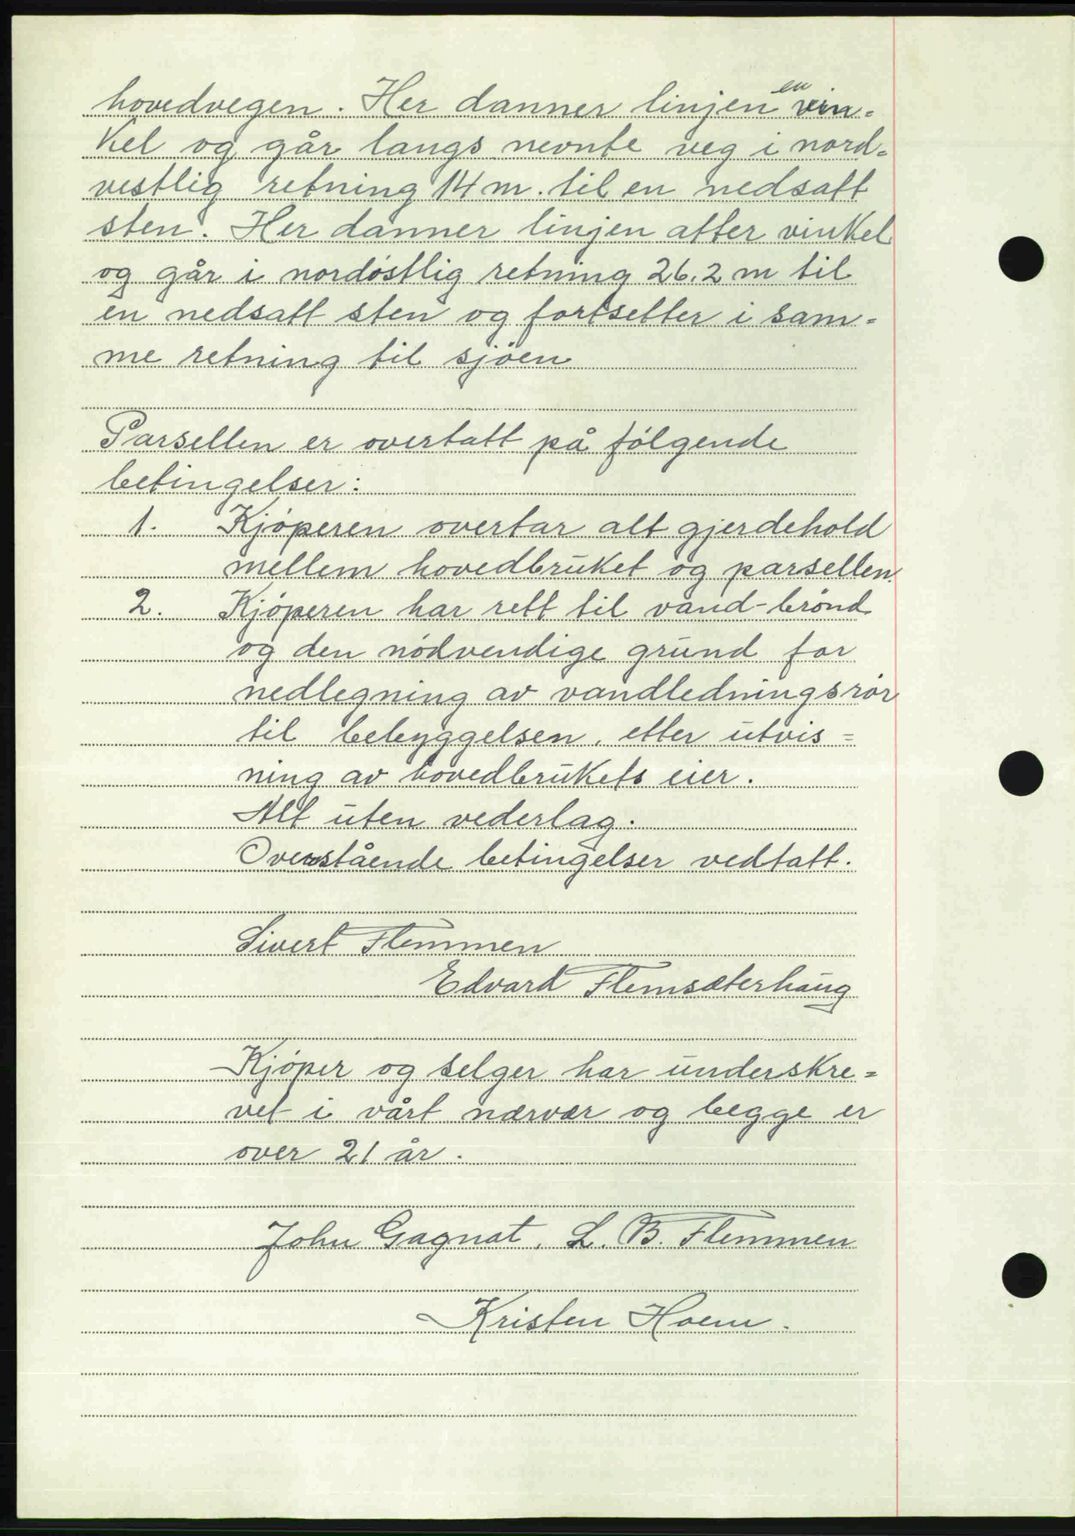 hovedvegen. Her danner linjen en vin=
kel og går langs nevnte veg i nord=
vestlig retning 14 m. til en nedsatt
sten. Her danner linjen atter vinkel
og går i nordøstlig retning 26.2 m til
en nedsatt sten og fortsetter i sam=
me retning til sjøen
Parsellen er overtatt på følgende
betingelser:
1. Kjøperen overtar alt gjerdehold
mellem hovedbruket og parsellen.
2. Kjøperen har rett til vand-brønd
og den nødvendige grund for
nedlegning av vandledningsrør
til bebyggelsen, etter utvis=
ning av hovedbrukets eier.
Alt uten vederlag.
Overstående betingelser vedtatt.
Sivert Flemmen
Edvard Flemsæterhaug
Kjøper og selger har underskre=
vet i vårt nærvær og begge er
over 21 år.
John Gagnat, L. B. Flemmen
Kristen Hoem.